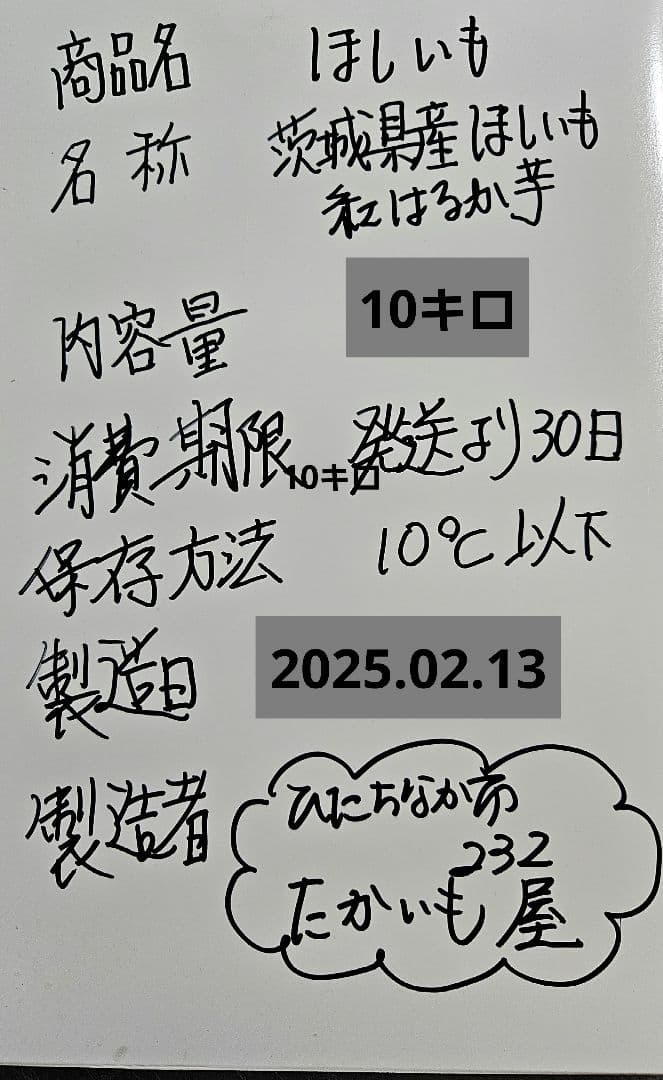 商品名 ほしいも
名称 茨城県産ほしいも
紅はるか芋
内容量 10キロ
消費期限 発送より30日
10キロ
保存方法 10℃以下
製造日 2025.02.13
製造者 ひたちなか市
232
たかいも屋